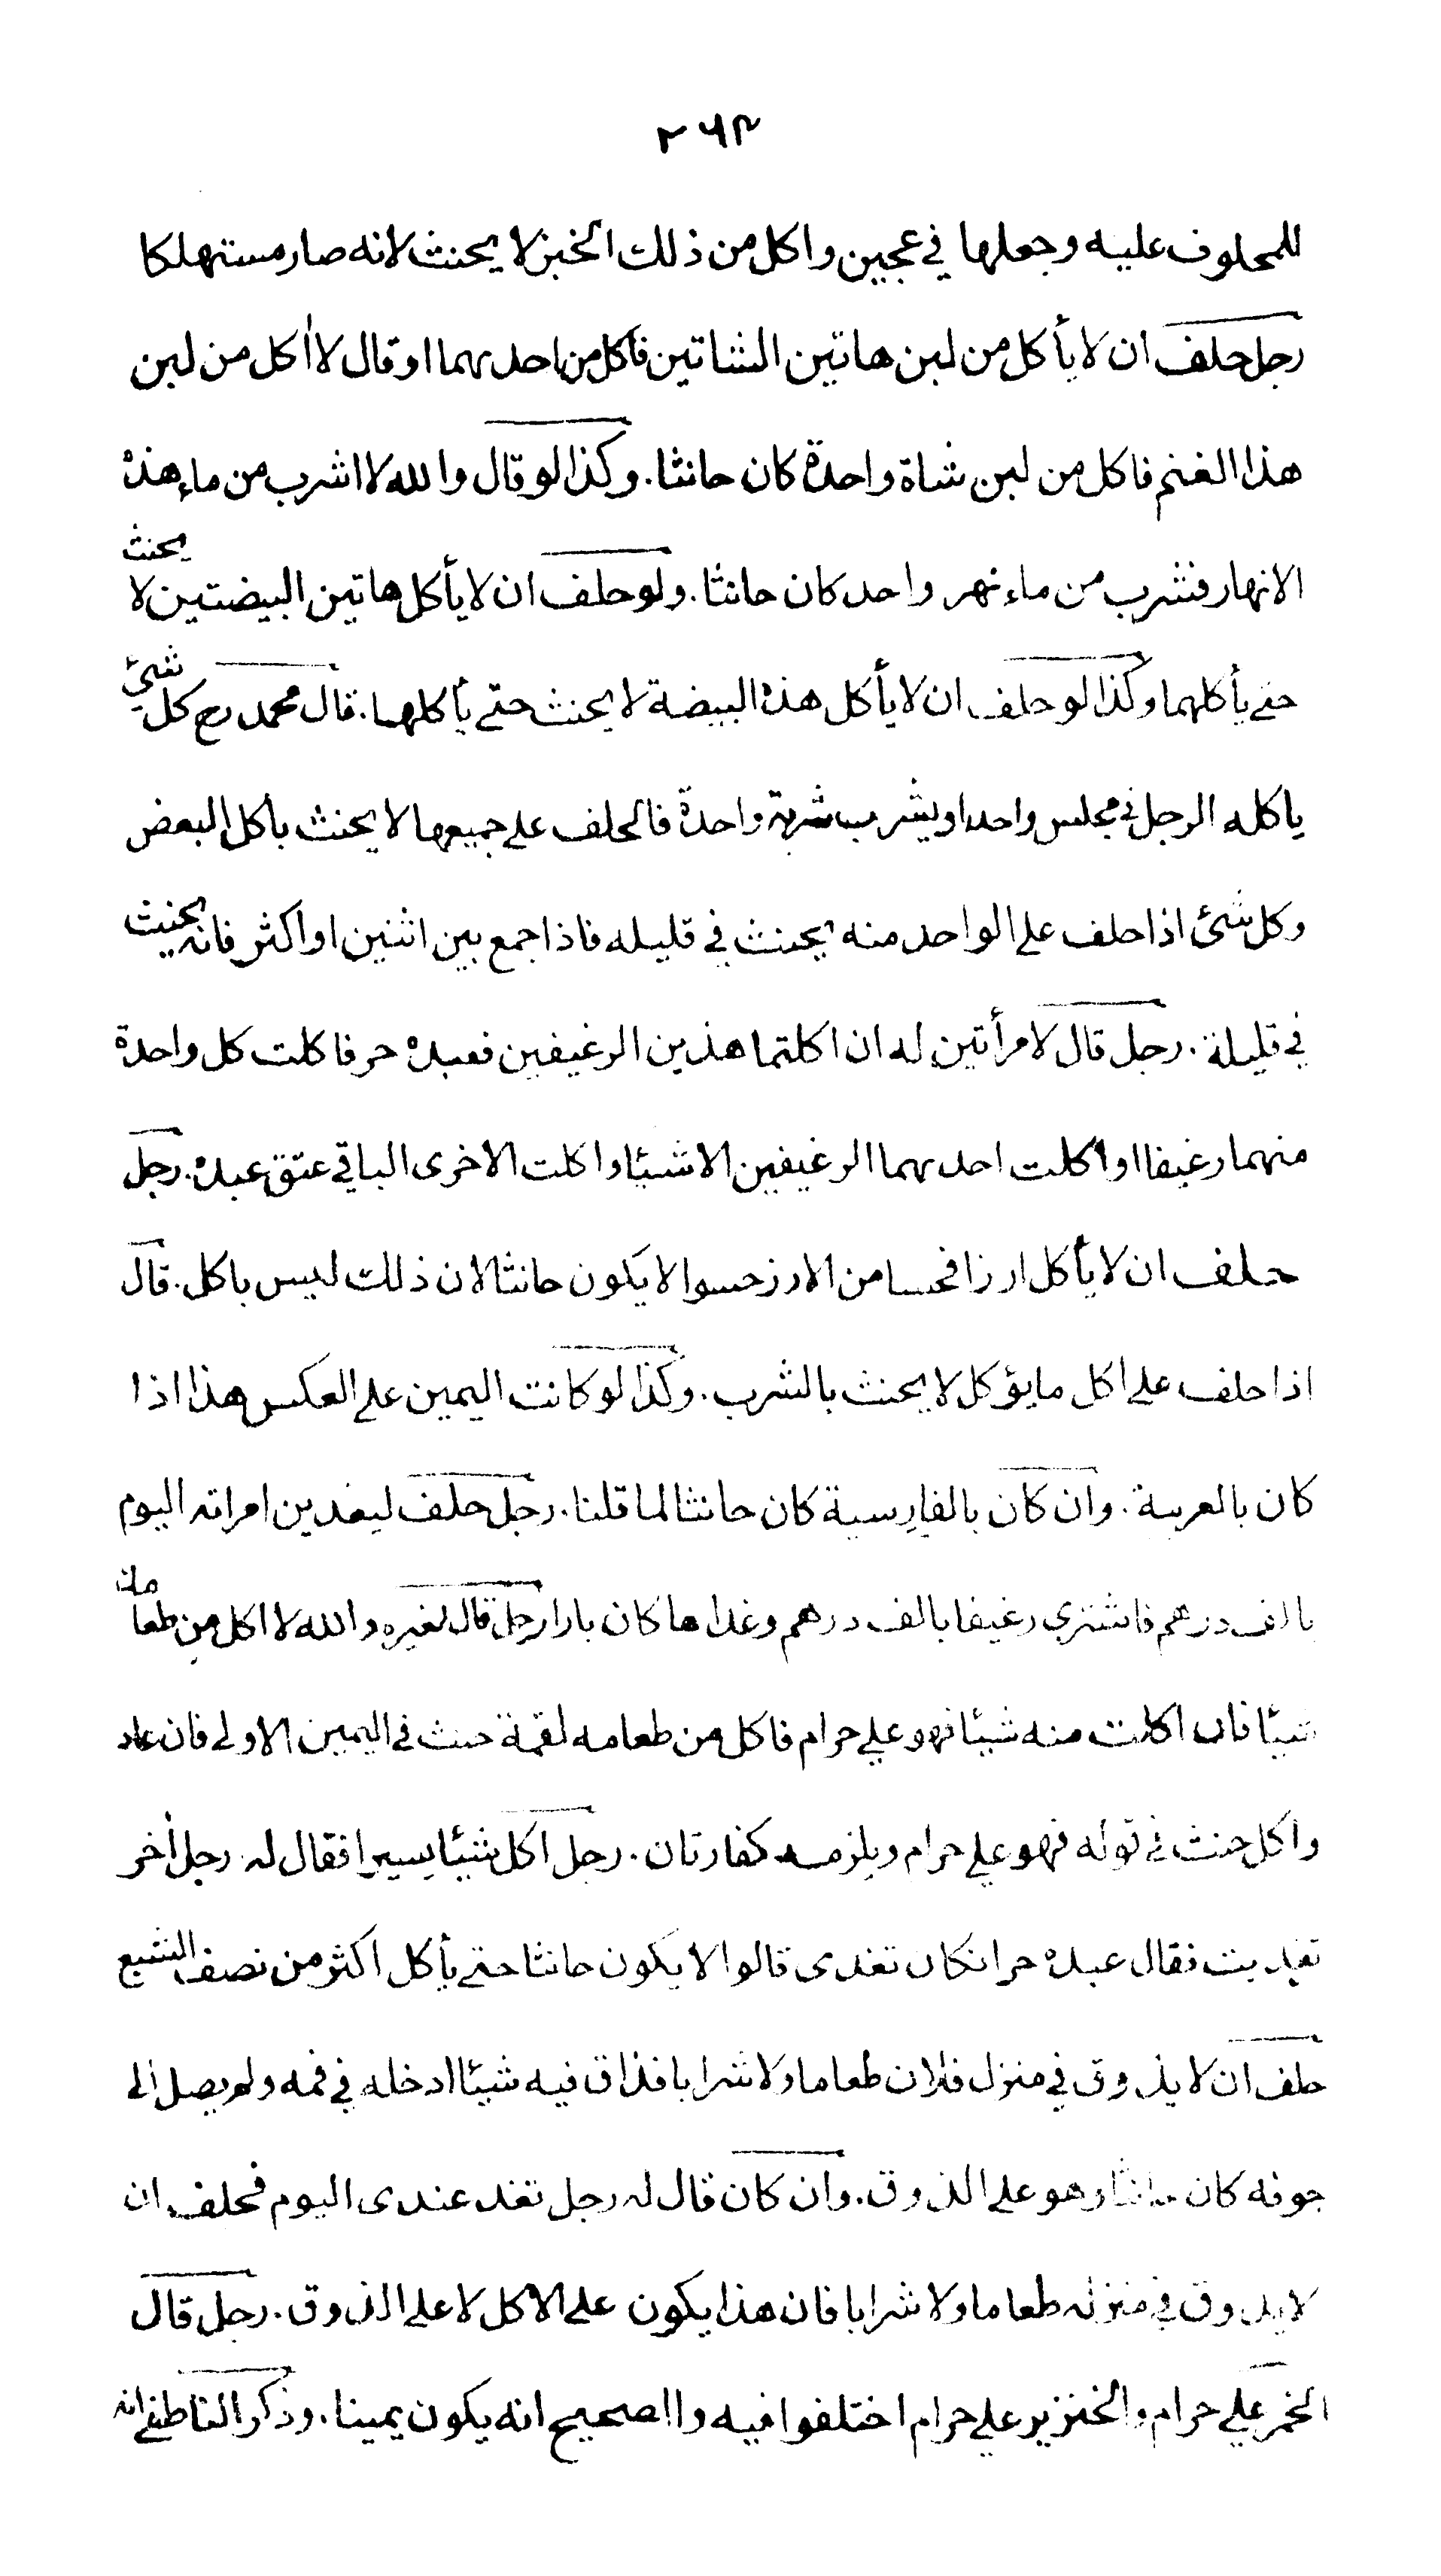 ٢٦٣
للمحلوف عليه وجعلها في عجين واكل من ذلك الخبز لا يحنث لانه صار مستهلكا
رجل حلف ان لا يأكل من لبن هاتين الشاتين فأكل من احدىهما او قال لا أكل من لبن
هذا الغنم فاكل من لبن شاة واحدة كان حانثا. وكذا لو قال والله لا اشرب من ماء هذه
الانهار فشرب من ماء نهر واحد كان حانثا. ولو حلف ان لا يأكل هاتين البيضتين لا يحنث
حتے يأكلهما وكذا لو حلف ان لا يأكل هذه البيضة لا يحنث حتے يأكلها. قال محمد رح كل شئ
ياكله الرجل في مجلس واحد او يشرب شربة واحدة فالحلف علے جميعها لا يحنث باكل البعض
وكل شئ اذا حلف علے الواحد منه يحنث في قليله فاذا جمع بين اثنين او اكثر فانه يحنث
في قليلة. رجل قال لامرأتين له ان اكلتما هذين الرغيفين فعبده حر فاكلت كل واحدة
منهما رغيفا او اكلت احدىهما الرغيفين الا شيئا واكلت الاخرى الباقي عتق عبده. رجل
حلف ان لا يأكل ارزا فحسا من الارز حسوا لا يكون حانثا لان ذلك ليس باكل. قال
اذا حلف علے اكل ما يؤكل لا يحنث بالشرب. وكذا لو كانت اليمين علے العكس هذا اذا
كان بالعربية. وان كان بالفارسية كان حانثا لما قلنا. رجل حلف ليغدين امراته اليوم
بالف درهم فاشترى رغيفا بالف درهم وغداها كان بارا رجل قال لغيره والله لا اكل من طعامك
شيئا فان اكلت منه شيئا فهو علي حرام فاكل من طعامه لقمة حنث في اليمين الاولى فان عاد
واكل حنث في قوله فهو علي حرام ويلزمه كفارتان. رجل اكل شيئا يسيرا فقال له رجل أخر
تغديت فقال عبده حر انكان تغدى قالوا لا يكون حانثا حتے يأكل اكثر من نصف الشبع
حلف ان لا يذوق في منزل فلان طعاما ولا شرابا فذاق فيه شيئا ادخله في فمه ولم يصل الى
جوفه كان حانثا وهو علے الذوق. وان كان قال له رجل تغد عندى اليوم فحلف ان
لا يذوق في منزله طعاما ولا شرابا فان هذا يكون علے الاكل لا علے الذوق. رجل قال
الخمر علي حرام والخنزير علي حرام اختلفوا فيه والصحيح انه يكون يمينا. وذكر الناطفے انه